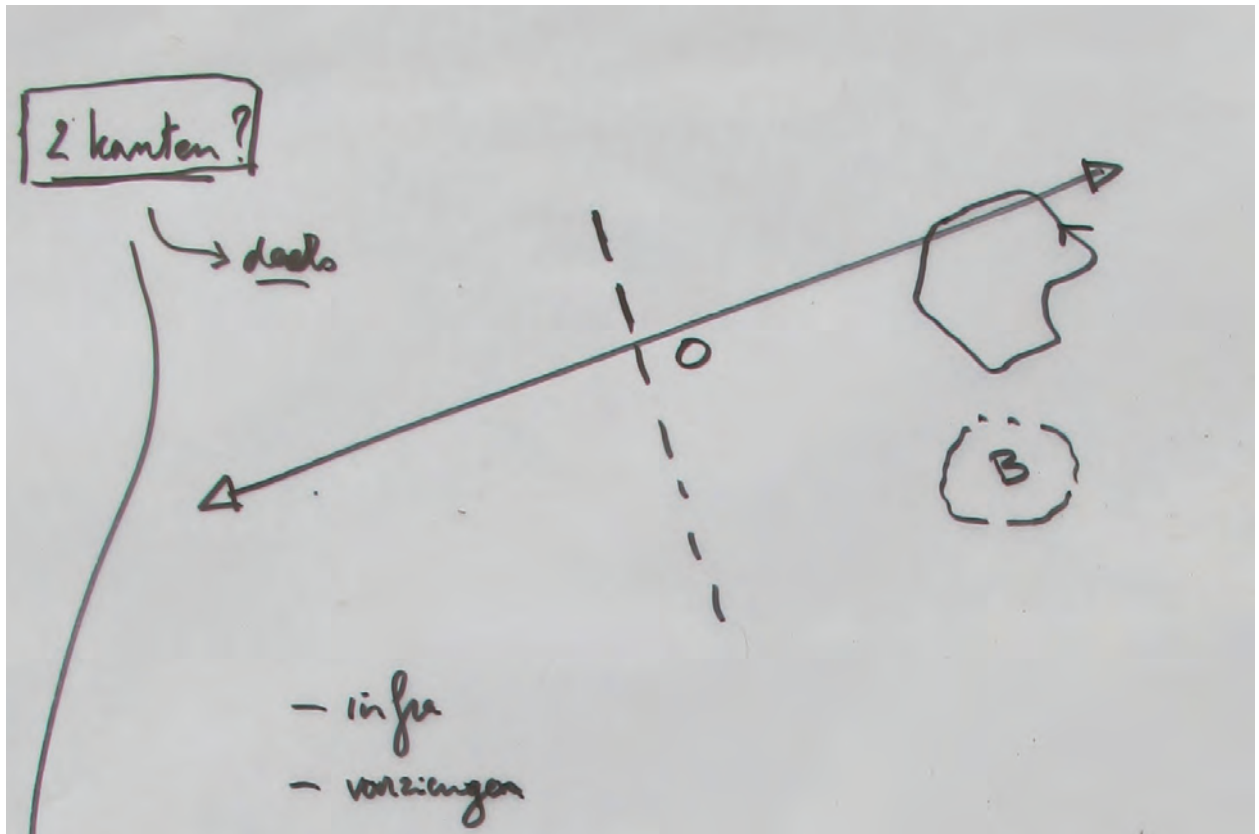 2 kanten?
deels
O
B
- infra
- voorzieningen